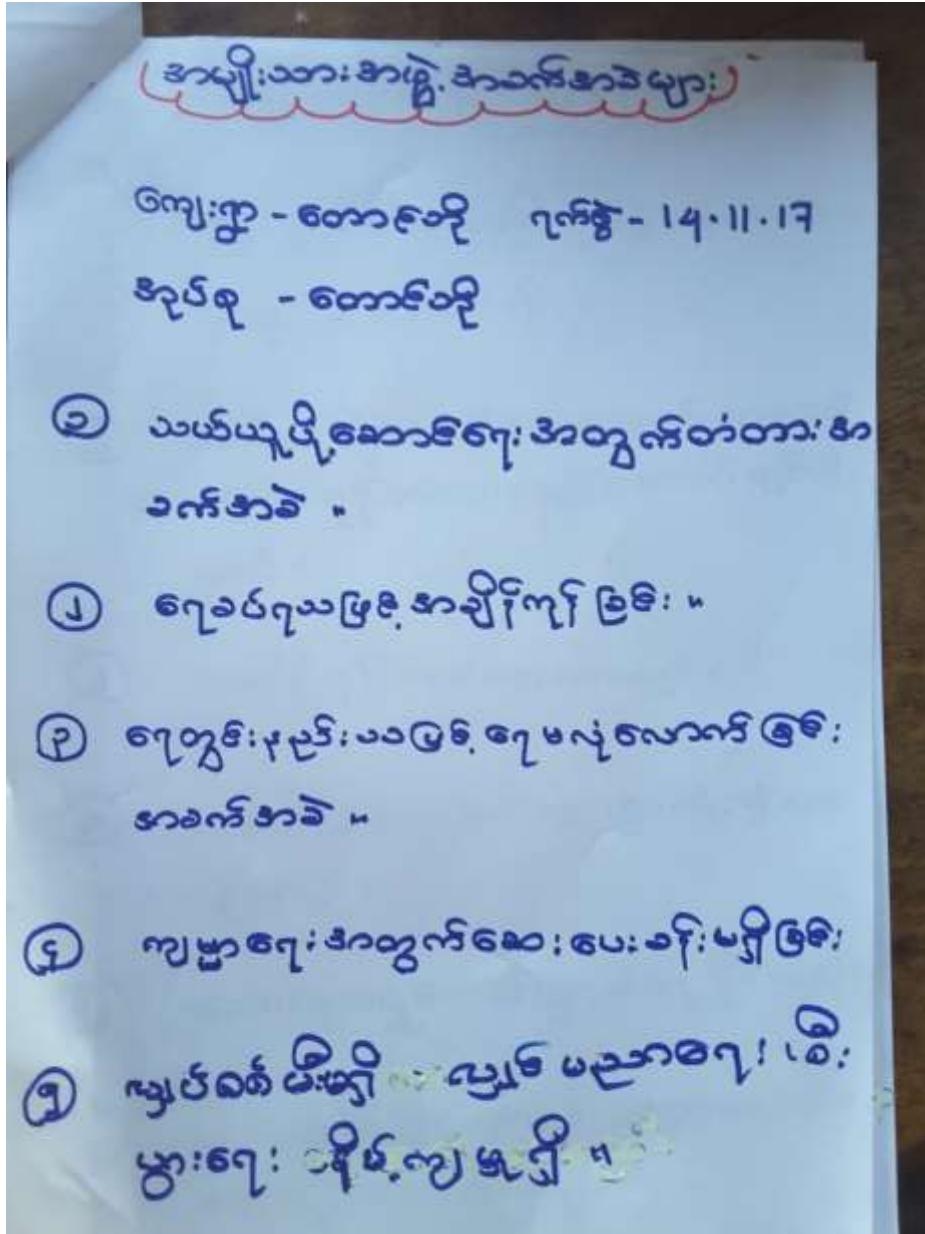 အမျိုးသားအဖွဲ့ အခက်အခဲများ
ကျေးရွာ - တောင်ဘို ရက်စွဲ - 14.11.17
အုပ်စု - တောင်ဘို
၁ သယ်ယူပို့ဆောင်ရေးအတွက်တံတားအ
ခက်အခဲ ။
၂ ရေခပ်ရသဖြင့် အချိန်ကုန်ခြင်း ။
၃ ရေတွင်းနည်းပါးသဖြင့် ရေမလုံလောက်ခြင်း
အခက်အခဲ ။
၄ ကျမ္မာရေးအတွက်ဆေးပေးခန်းမရှိခြင်း
၅ လျှပ်စစ်မီးမရှိ လျှင် ပညာရေး၊ စီး
ပွားရေး နိမ့်ကျမှုရှိ ။